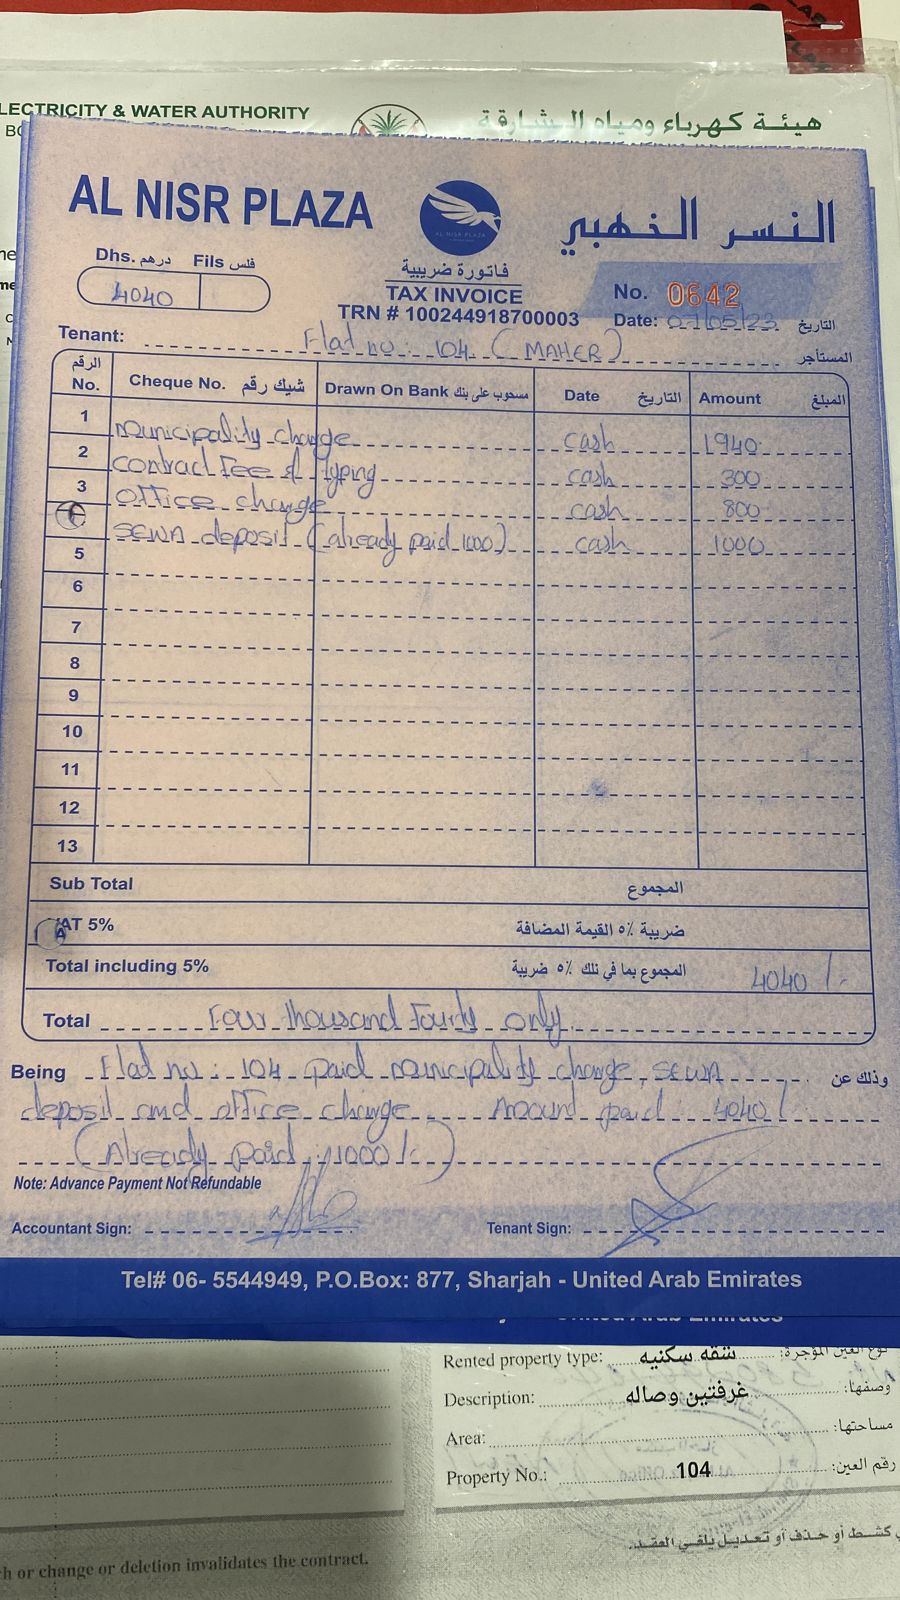 LECTRICITY & WATER AUTHORITY
هيئة كهرباء ومياه الشارقة
AL NISR PLAZA
النسر الذهبي
AL NISR PLAZA
Dhs. درهم Fils فلس
4040
فاتورة ضريبية
TAX INVOICE
TRN # 100244918700003
No. 0642
Date: 07/05/23 التاريخ
Tenant: Flat no: 104 (MAHER) المستأجر
الرقم No. Cheque No. شيك رقم Drawn On Bank مسحوب على بنك Date التاريخ Amount المبلغ
1 municipality charge cash 1940
2 contract Fee & typing cash 300
3 office charge cash 800
SEWA deposit (already paid 1000) cash 1000
5
6
7
8
9
10
11
12
13
Sub Total المجموع
VAT 5% ضريبة ٥٪ القيمة المضافة
Total including 5% المجموع بما في ذلك ٥٪ ضريبة 4040/-
Total Four thousand Fourty only
Being Flat no: 104 paid municipality charge, SEWA وذلك عن
deposit and office charge Amount paid 4040/
(Already paid : 1000/-)
Note: Advance Payment Not Refundable
Accountant Sign: Tenant Sign:
Tel# 06- 5544949, P.O.Box: 877, Sharjah - United Arab Emirates
United Arab Emirates
Rented property type: شقه سكنيه نوع العين المؤجرة:
Description: غرفتين وصاله وصفها:
Area: مساحتها:
Property No.: 104 رقم العين:
كشط أو حذف أو تعديل يلغي العقد.
ch or change or deletion invalidates the contract.